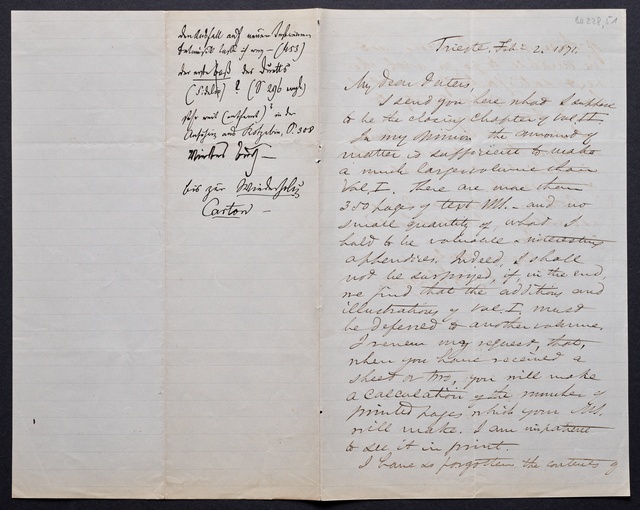 den Nachhall auf
lasse ich weg — (453)
der erste Baß des Duetts
(Fidelio) ? (S 296
sehr weit (entfernt)? in der
aus Kotzebue, P. 308
bis zur Wiederholg
Carton —
Trieste, Feb. 2. 1871.
My dear Deiters,
I send you here what I suppose
to be the closing chapter of Vol. II.
In my opinion the amount of
matter is sufficient to make
a much larger volume than
Vol. I. There are more than
350 pages of text MS. — and no
small quantity of what I
hold to be valuable & interesting
appendices. Indeed, I shall
not be surprised, if, in the end,
we find that the additions and
illustrations of Vol. I. must
be deferred to another volume.
I renew my request, that,
when you have received a
sheet or two, you will make
a calculation of the number of
printed pages which your MS.
will make. I am impatient
to see it in print.
I have so forgotten the contents of